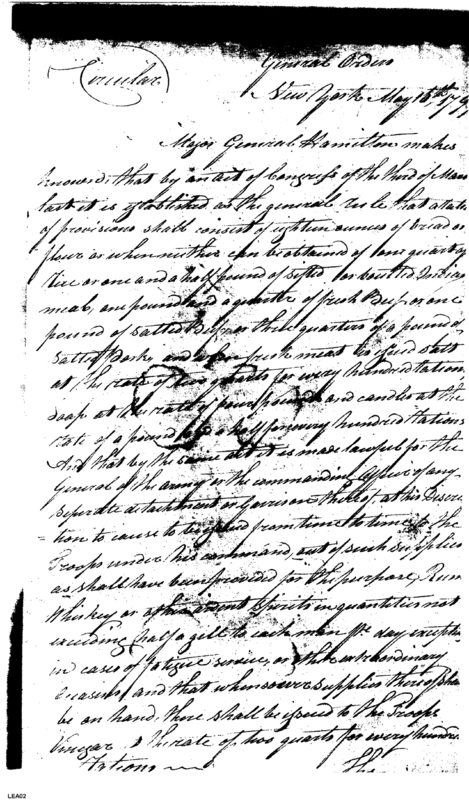 General Orders
Circular
New York May 15th 179
Major General Hamilton makes
known, that by an act of Congress of the third of March
last it is established as the general rule that a ration
of provisions shall consist of eighteen ounces of bread or
flour or when neither can be obtained of one quart of
Rice or one and a half pound of sifted or boulted Indian
meal, one pound and a quarter of fresh Beef or one
pound of salted Beef or three quarters of a pound of
salted Pork, and when fresh meat is issued salt
at the rate of two quarts for every hundred rations
soap at the rate of four pounds and candles at the
rate of a pound and a half for every hundred Rations
And that by the same act it is made lawful for the
General of the army or the commanding officer of any
separate detachment or Garrison thereof, at his Discre-
tion to cause to be issued from time to time to the
Troops under his command, out of such supplies
as shall have been provided for the purpose, Rum
Whiskey or other ardent spirits in quantities not
exceeding half a gill to each man pr day excepting
in cases of fatigue service, or other extraordinary
occasions, and that whensoever supplies thereof shall
be on hand, there shall be issued to the Troops
Vinegar at the rate of two quarts for every hundred
Rations
The
LEA02